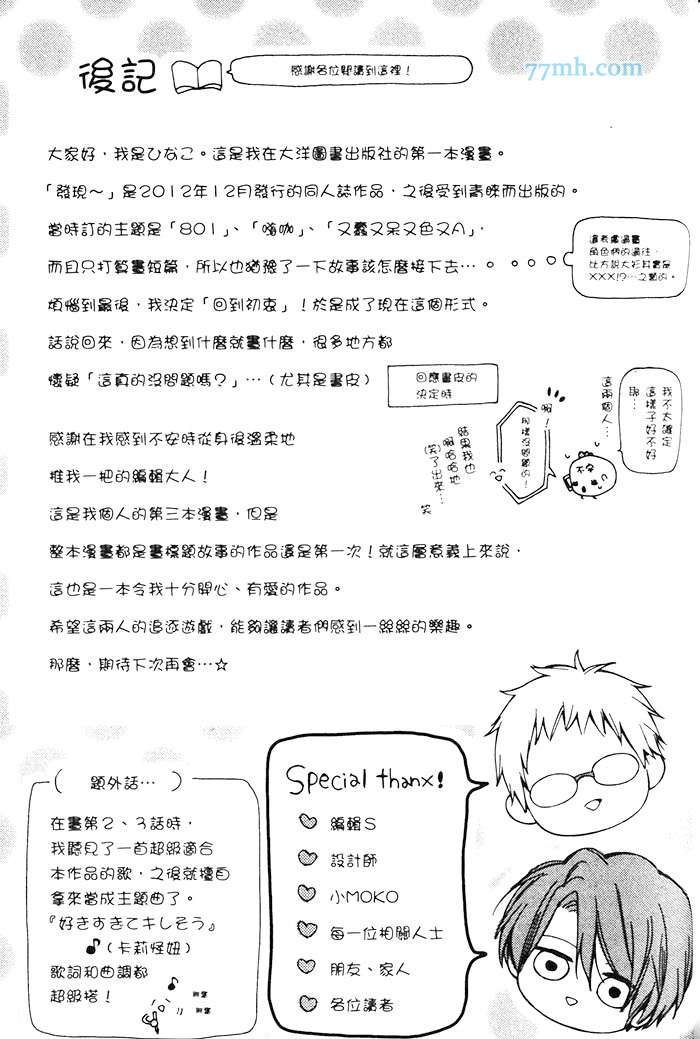 77mh.com
後記
感謝各位閱讀到這裡！
大家好，我是ひなこ。這是我在大洋圖書出版社的第一本漫畫。
「發現～」是2012年12月發行的同人誌作品，之後受到青睞而出版的。
當時訂的主題是「801」、「嗨咖」、「又蠢又呆又色又A」，
而且只打算畫短篇，所以也猶豫了一下故事該怎麼接下去…。
還考慮過畫
角色們的過往，
比方說大杉其實是
XXX!?…之類的。
煩惱到最後，我決定「回到初衷」！於是成了現在這個形式。
話說回來，因為想到什麼就畫什麼，很多地方都
懷疑「這真的沒問題嗎？」…（尤其是書皮）
回應書皮的
決定時
我不太確定
這樣子好不好
耶…
這兩個人…
不安
啊！
結果我也
啊哈哈地
笑了出來…
（笑）
笑
感謝在我感到不安時從身後溫柔地
推我一把的編輯大人！
這是我個人的第三本漫畫，但是
整本漫畫都是畫標題故事的作品還是第一次！就這層意義上來說，
這也是一本令我十分開心、有愛的作品。
希望這兩人的追逐遊戲，能夠讓讀者們感到一絲絲的樂趣。
那麼，期待下次再會…☆
題外話…
在畫第2、3話時，
我聽見了一首超級適合
本作品的歌，之後就擅自
拿來當成主題曲了。
『好きすきてキしそう』
♪（卡莉怪妞）
歌詞和曲調都
超級搭！
Special thanx!
♡ 編輯S
♡ 設計師
♡ 小MOKO
♡ 每一位相關人士
♡ 朋友、家人
♡ 各位讀者